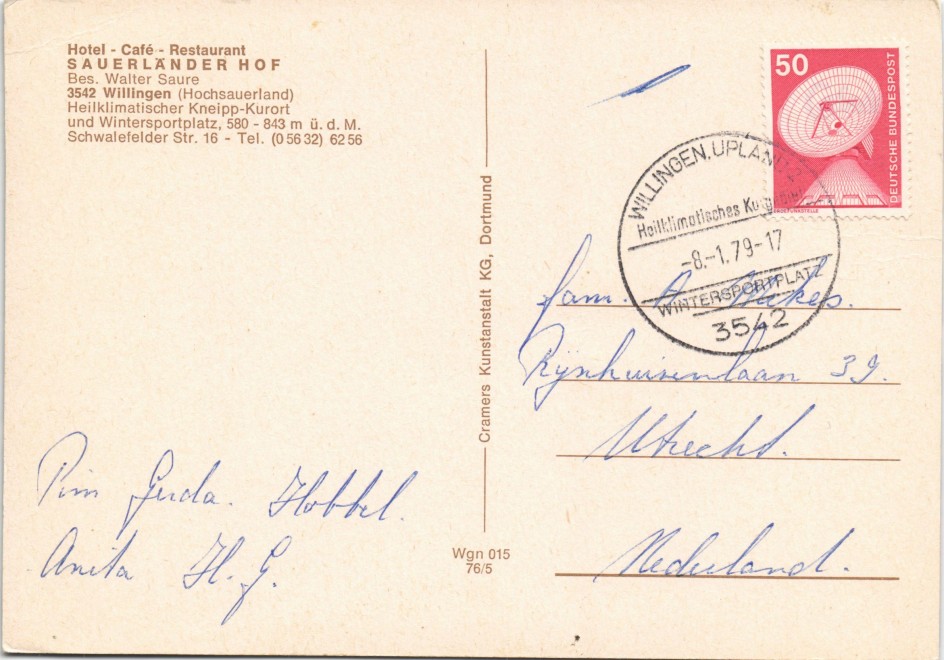 Hotel - Café - Restaurant
SAUERLÄNDER HOF
Bes. Walter Saure
3542 Willingen (Hochsauerland)
Heilklimatischer Kneipp-Kurort
und Wintersportplatz, 580 - 843 m ü. d. M.
Schwalefelder Str. 16 - Tel. (0 56 32) 62 56
Pim Gerda. Hobbel.
Anita H. G.
Cramers Kunstanstalt KG, Dortmund
Wgn 015
76/5
50
DEUTSCHE BUNDESPOST
ERDEFUNKSTELLE
WILLINGEN, UPLAND
Heilklimatisches
-8.-1.79-17
WINTERSPORTPLATZ
3542
fam. A
Rijnhuizenlaan 39.
Utrecht.
Nederland.